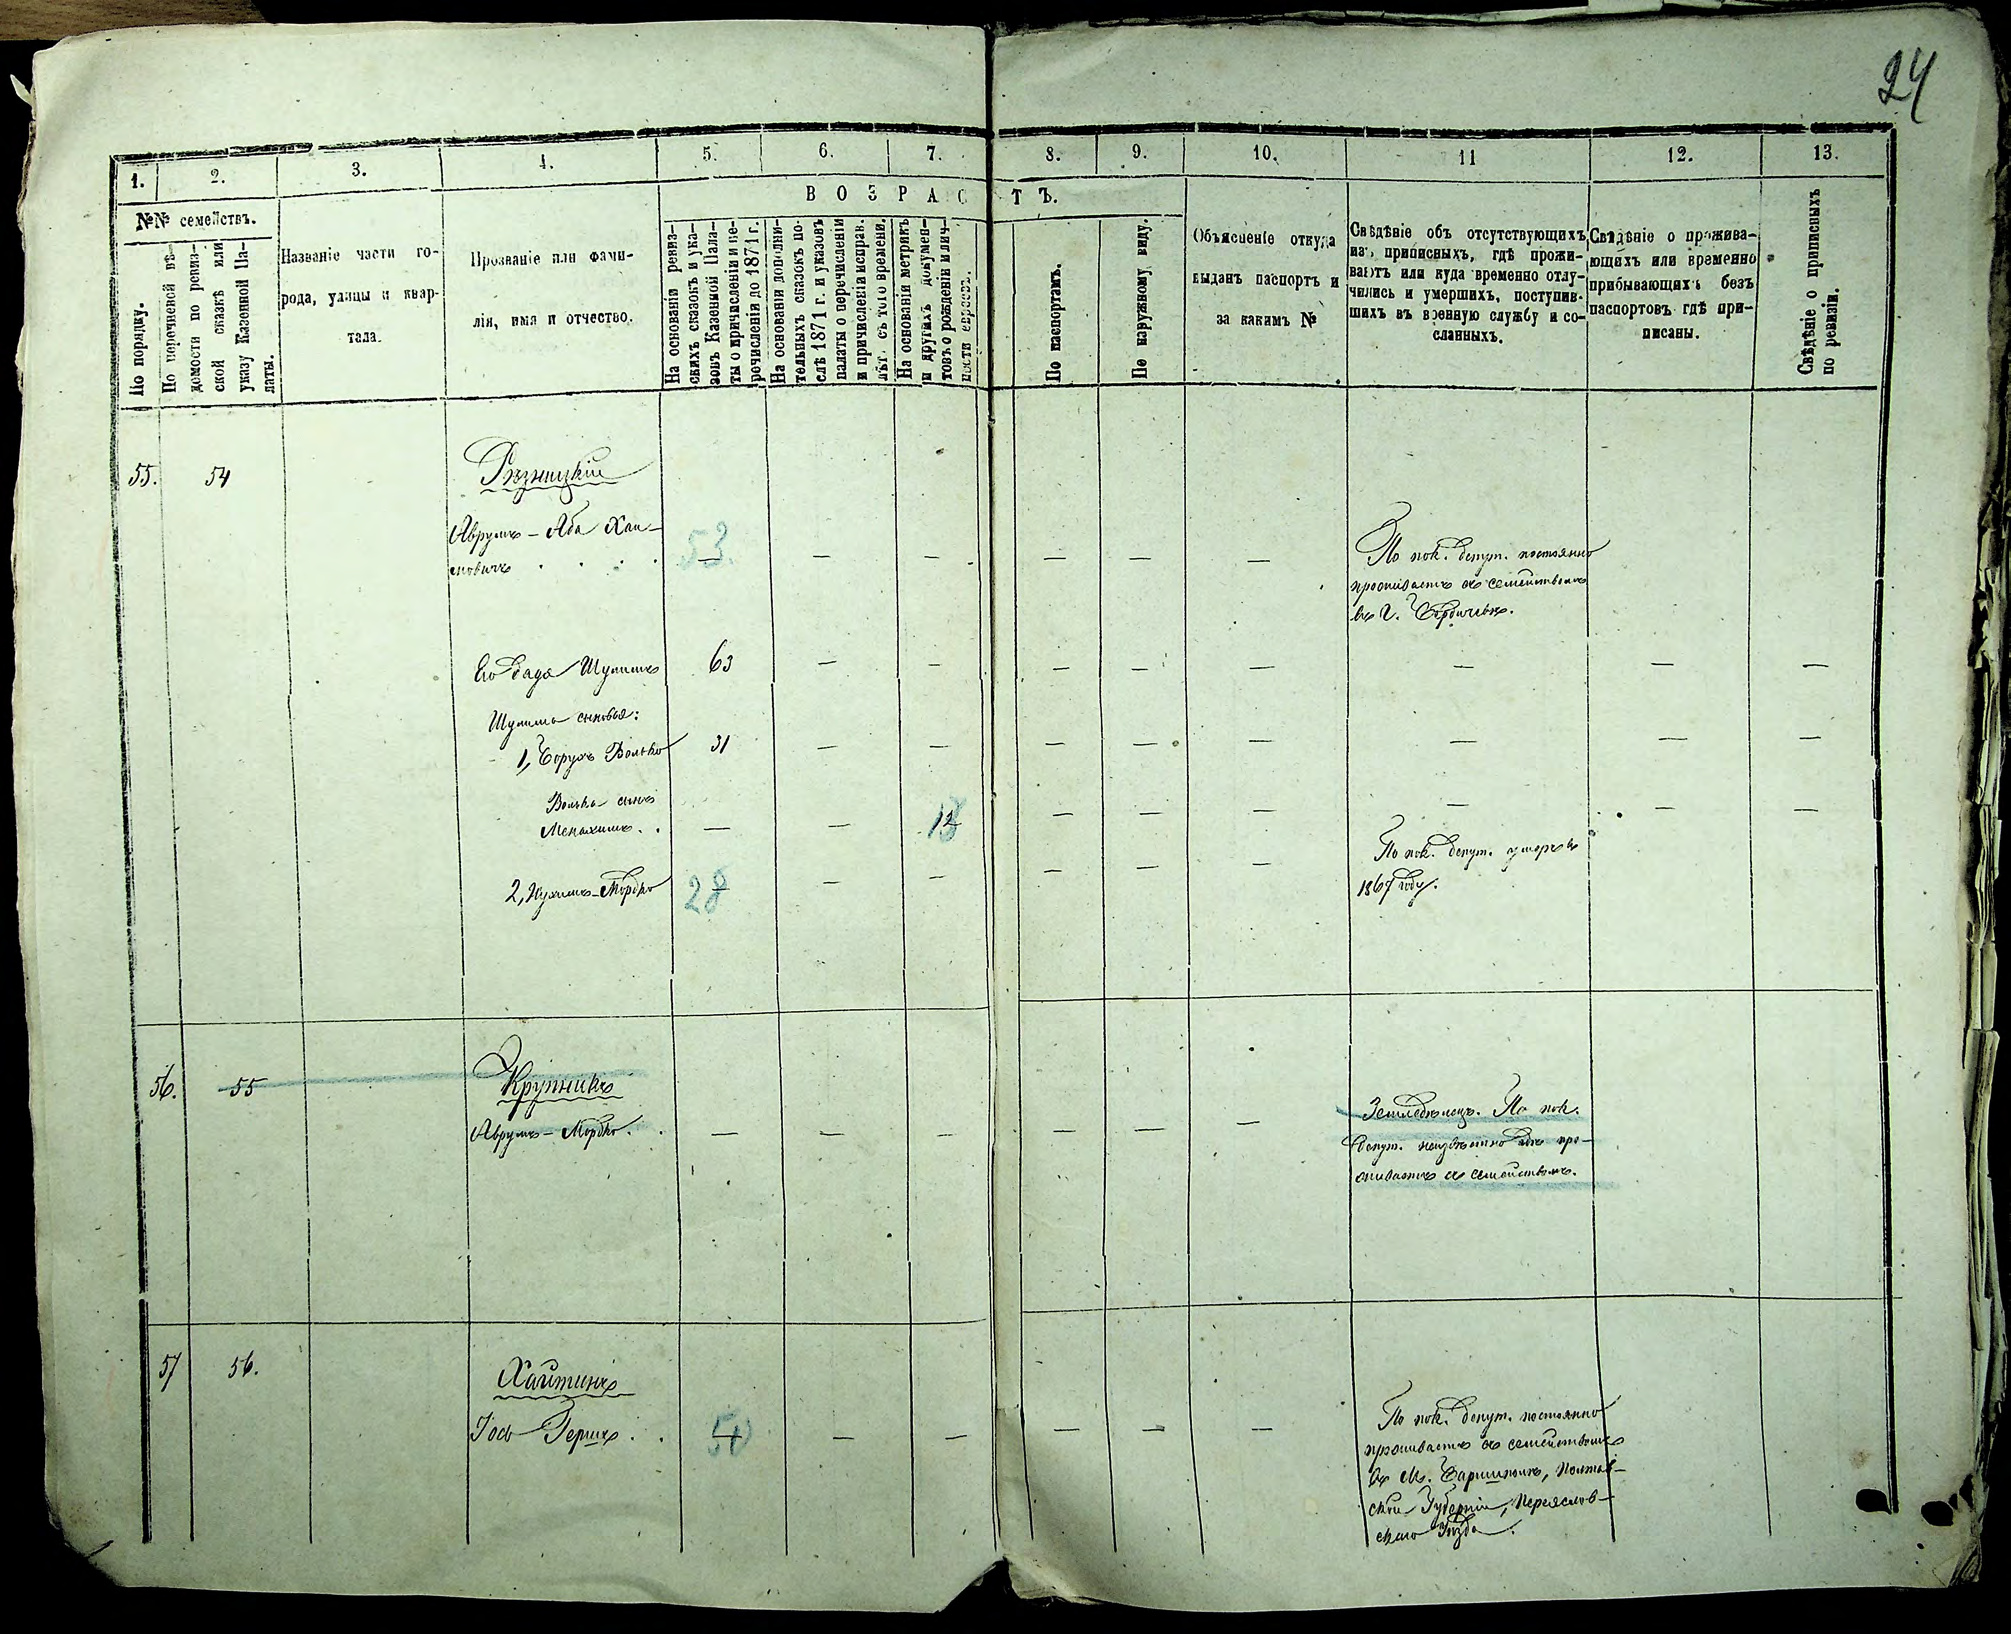 24
1.
2.
3.
4.
5.
6.
7.
8.
9.
10.
11
12.
13.
ВОЗРАСТЪ.
№№ семействъ.
По порядку.
По перечневой вѣ-
домости по ревиз-
ской сказкѣ или
указу Казенной Па-
латы.
Названіе части го-
рода, улицы и квар-
тала.
Прозваніе или фами-
лія, имя и отчество.
На основаніи ревиз-
скихъ сказокъ и ука-
зовъ Казенной Пала-
ты о причисленіи и пе-
речисленіи до 1871 г.
На основаніи дополни-
тельныхъ сказокъ по-
слѣ 1871 г. и указовъ
палаты о перечисленіи
и причисленіи исправ.
лѣт. съ того времени.
На основаніи метрикъ
и другихъ докумен-
товъ о рожденіи и лич-
ности евреевъ.
По паспортамъ.
По наружному виду.
Объясненіе откуда
выданъ паспортъ и
за какимъ №
Свѣдѣніе объ отсутствующихъ
изъ приписныхъ, гдѣ прожи-
ваютъ или куда временно отлу-
чились и умершихъ, поступив-
шихъ въ военную службу и со-
сланныхъ.
Свѣдѣніе о прожива-
ющихъ или временно
прибывающихъ безъ
паспортовъ гдѣ при-
писаны.
Свѣдѣніе о приписныхъ
по ревизіи.
55. 54 Рѣзницкій
Аврумъ-Аба Хаи-
мовичъ . . . . 53. — — — — —
По пок. депут. постоянно
проживаетъ съ семействомъ
въ г. Бердичевѣ.
Его дядя Шулимъ 63 — — — — — — — —
Шулима сыновья:
1, Борухъ Волько 31 — — — — — — — —
Волька сынъ
Менахимъ . . — — — — — — — —
2, Нухимъ-Мордко 28 — — — — —
По пок. депут. умеръ въ
1867 году.
56. 55 Крупникъ
Аврумъ-Мордко . . — — — — — —
Земледѣлецъ. По пок.
депут. неизвѣстно гдѣ про-
живаетъ съ семействомъ.
57 56. Хайтинъ
Іось Гершъ . . 50 — — — — —
По пок. депут. постоянно
проживаетъ съ семействомъ
въ м. Баришполѣ, Полтав-
ской Губерніи, Переяслов-
скаго Уѣзда.